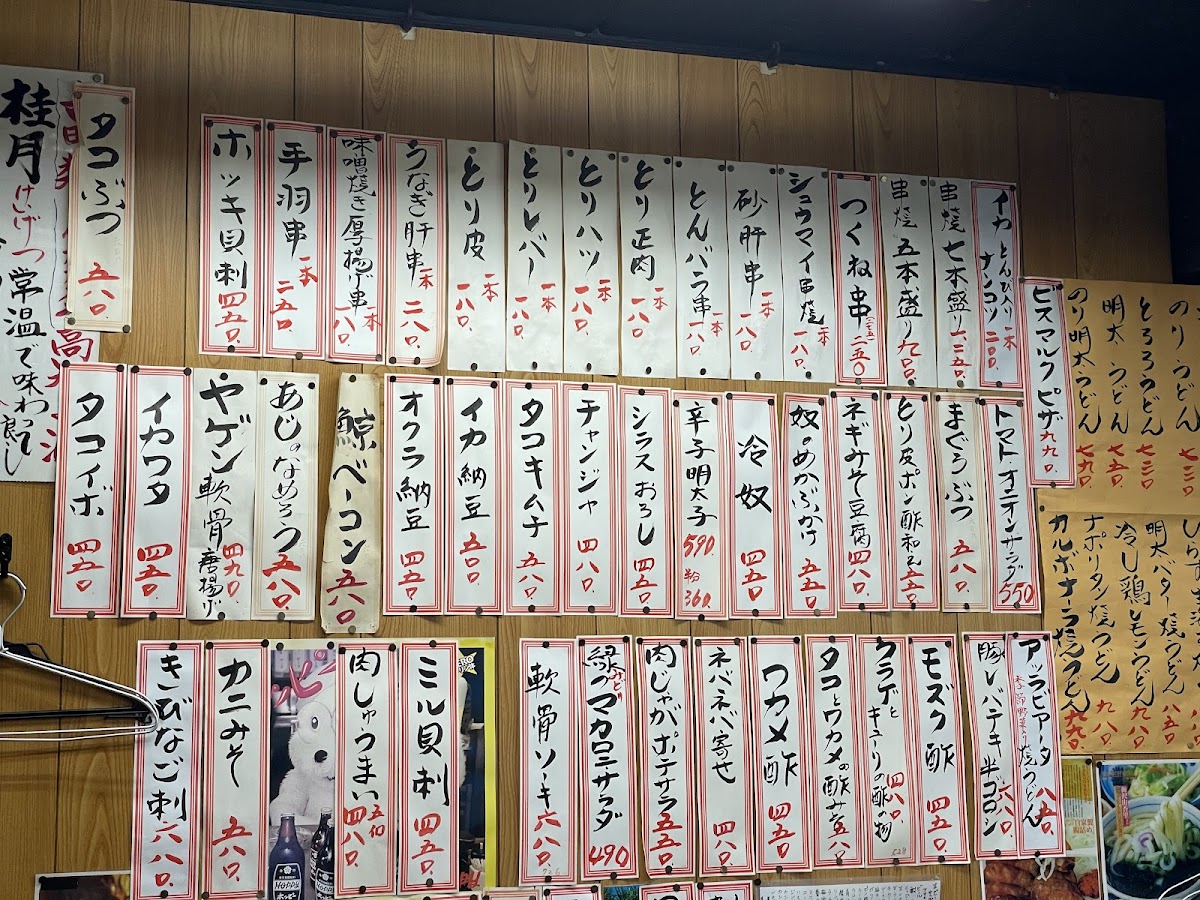 桂月
けいげつ
常温で味わって
タコぶつ 五八〇.
ホッキ貝刺 四五〇.
手羽串 一本 二五〇
味噌焼き厚揚げ串 一本 一八〇.
うなぎ肝串 一本 二八〇.
とり皮 一本 一八〇.
とりレバー 一本 一八〇.
とりハツ 一本 一八〇.
とり正肉 一本 一八〇.
とんバラ串 一本 一八〇.
砂肝串 一本 一八〇.
シュウマイ串焼 一本 一八〇.
つくね串 二五〇
串焼五本盛り 九〇〇.
串焼七本盛り 一二五〇.
イカとんび入りナンコツ 一本 二〇〇.
ビスマルクピザ 九九〇.
のりうどん 七三〇
とろろうどん 七三〇
明太うどん 七五〇
のり明太うどん 七九〇
タコイボ 四五〇.
イカワタ 四五〇.
ヤゲン軟骨唐揚げ 四九〇.
あじのなめろう 五八〇.
鯨ベーコン 五八〇.
オクラ納豆 四五〇
イカ納豆 五〇〇
タコキムチ 五八〇.
チャンジャ 四八〇.
シラスおろし 四五〇.
辛子明太子 590. 半分 360.
冷奴 四五〇
奴のめかぶかけ 五五〇.
ネギみそ豆腐 四八〇.
とり皮ポン酢和え 五五〇.
まぐろぶつ 五八〇.
トマトオニオンサラダ 550
明太バター焼うどん 八五〇
冷し鶏レモンうどん 八八〇.
ナポリタン焼うどん 九八〇.
カルボナーラ焼うどん 九九〇.
きびなご刺 六八〇.
カニみそ 五八〇.
肉しゅうまい 五個 四八〇.
ミル貝刺 四五〇.
軟骨ソーキ 六八〇.
緑のマカロニサラダ 490
肉じゃがポテサラ 五五〇.
ネバネバ寄せ 四八〇.
ワカメ酢 四五〇.
タコとワカメの酢みそ 五八〇
クラゲとキューリの酢の物 四八〇.
モズク酢 四五〇.
豚レバテキ半コロン 六八〇.
アラビアータ焼うどん 八五〇.
季節野菜入り
HOPPY
HOPPY